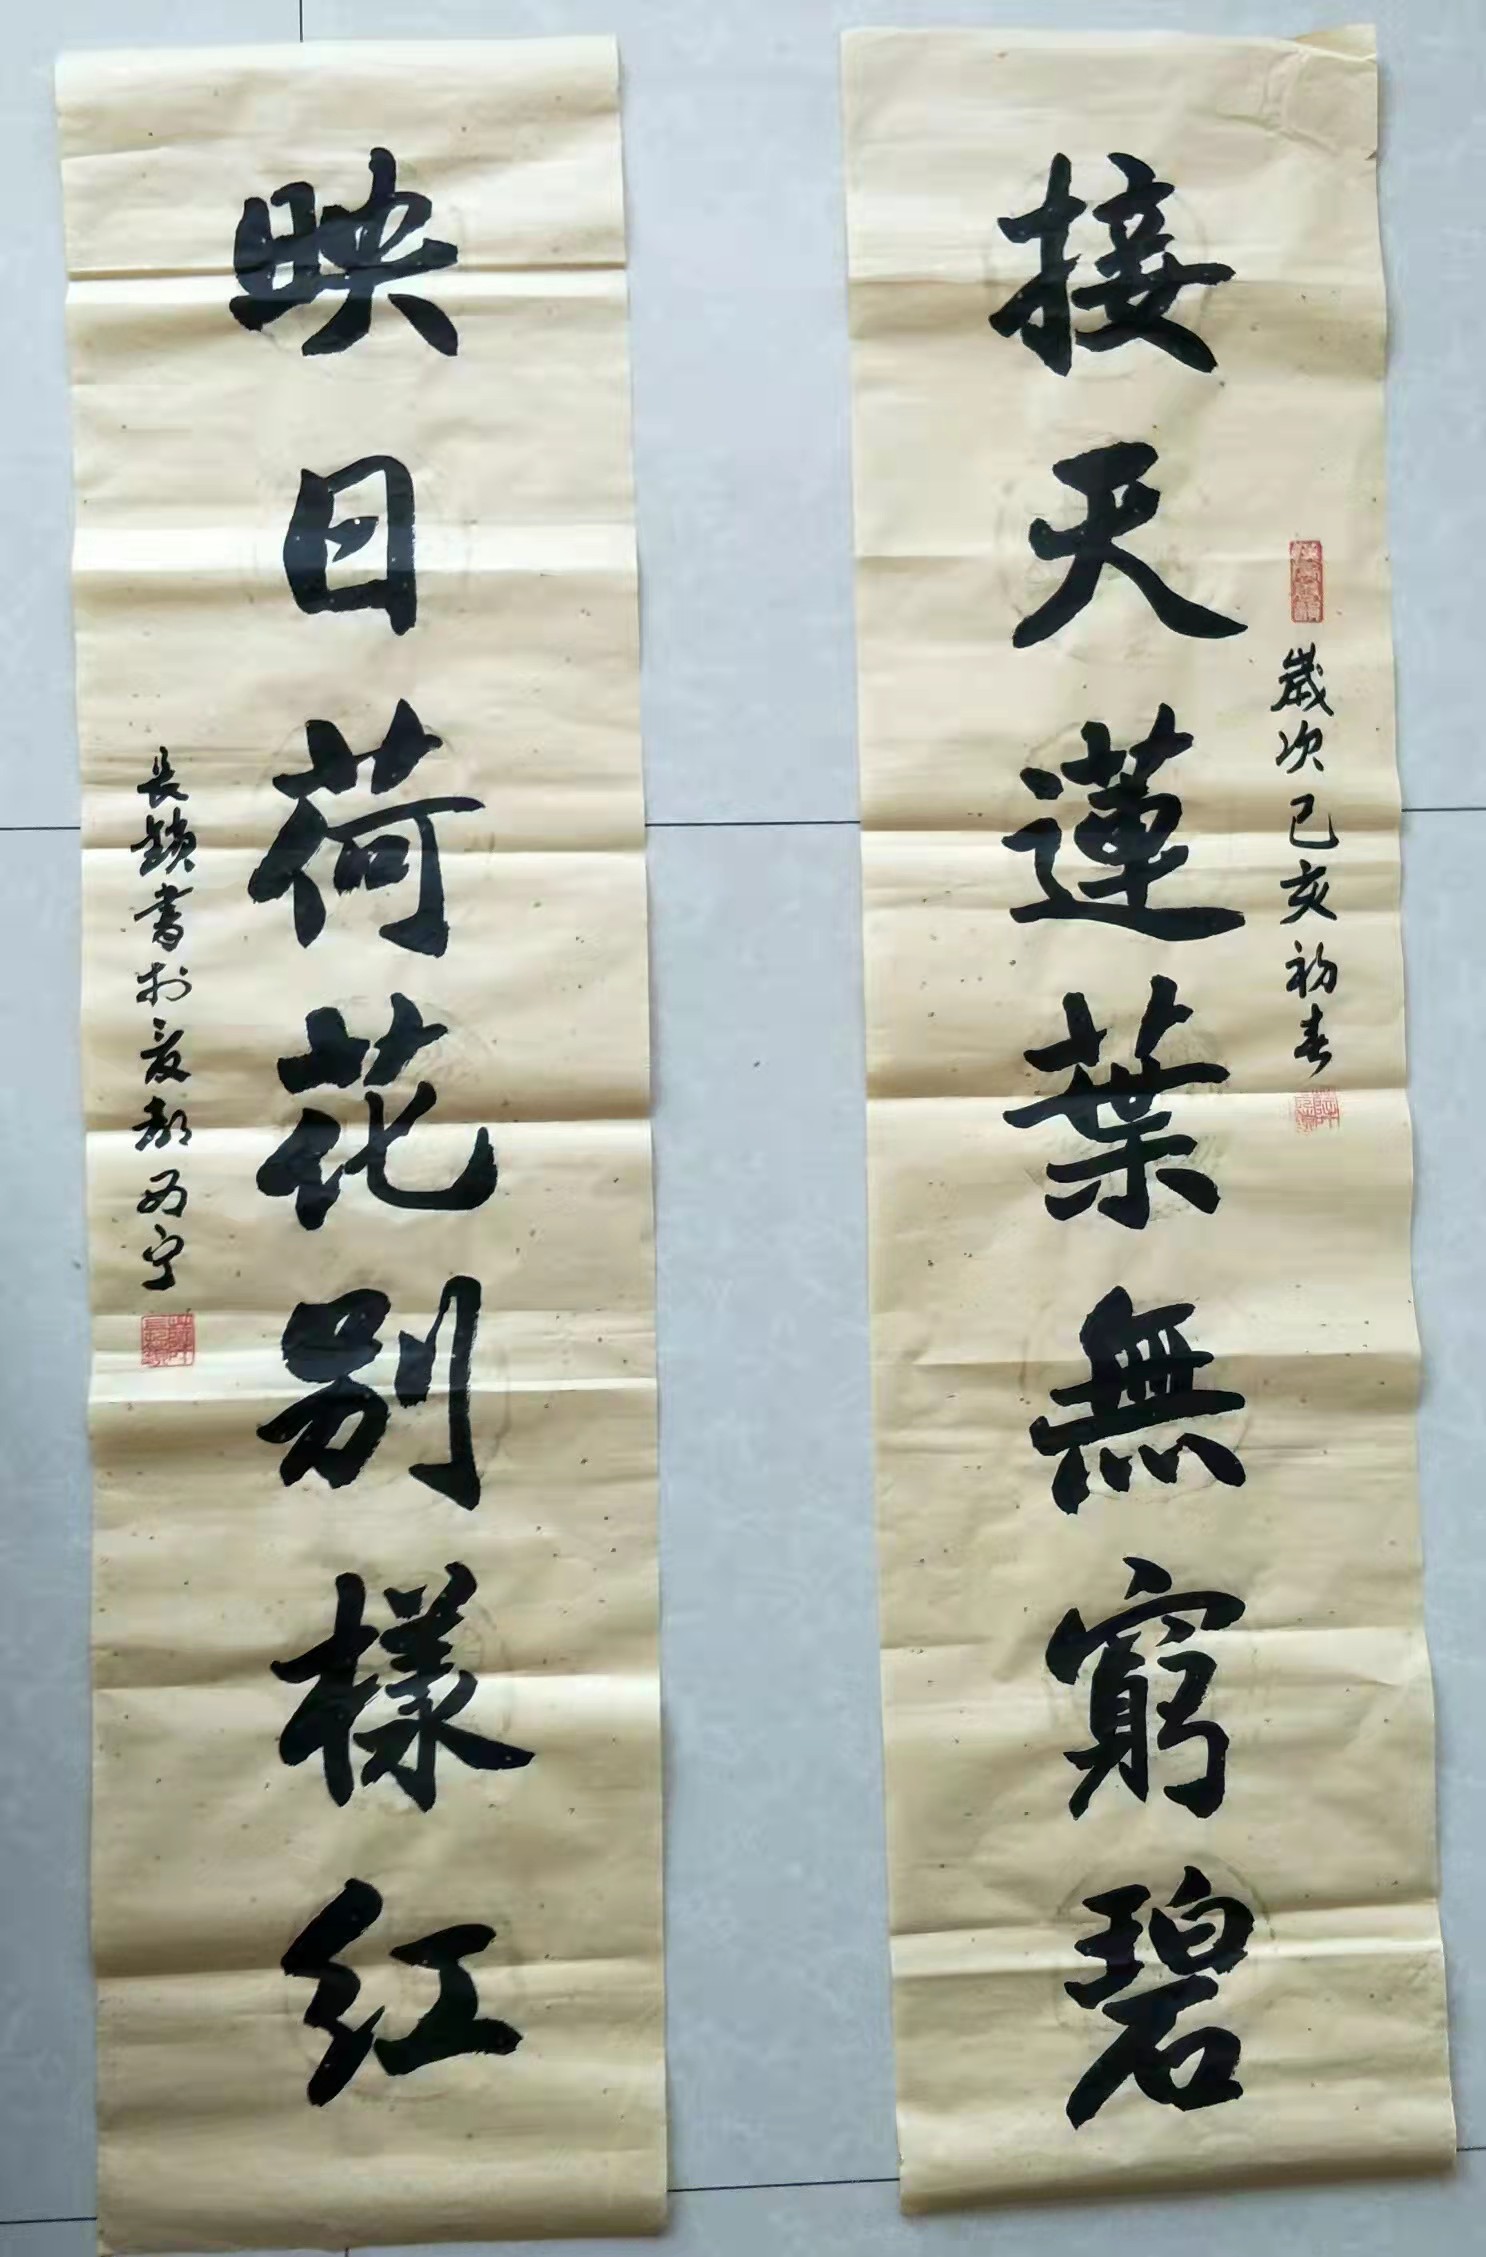 接天蓮葉無窮碧
歲次己亥初春
映日荷花别樣紅
長鎖書於夏都西宁